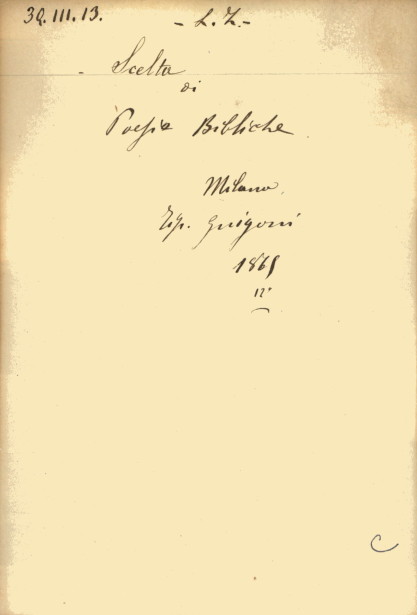 39.III.13.
- L. Z. -
- Scelta
di
Poesie Bibliche
Milano.
Tip. Guigoni
1865
12°
C